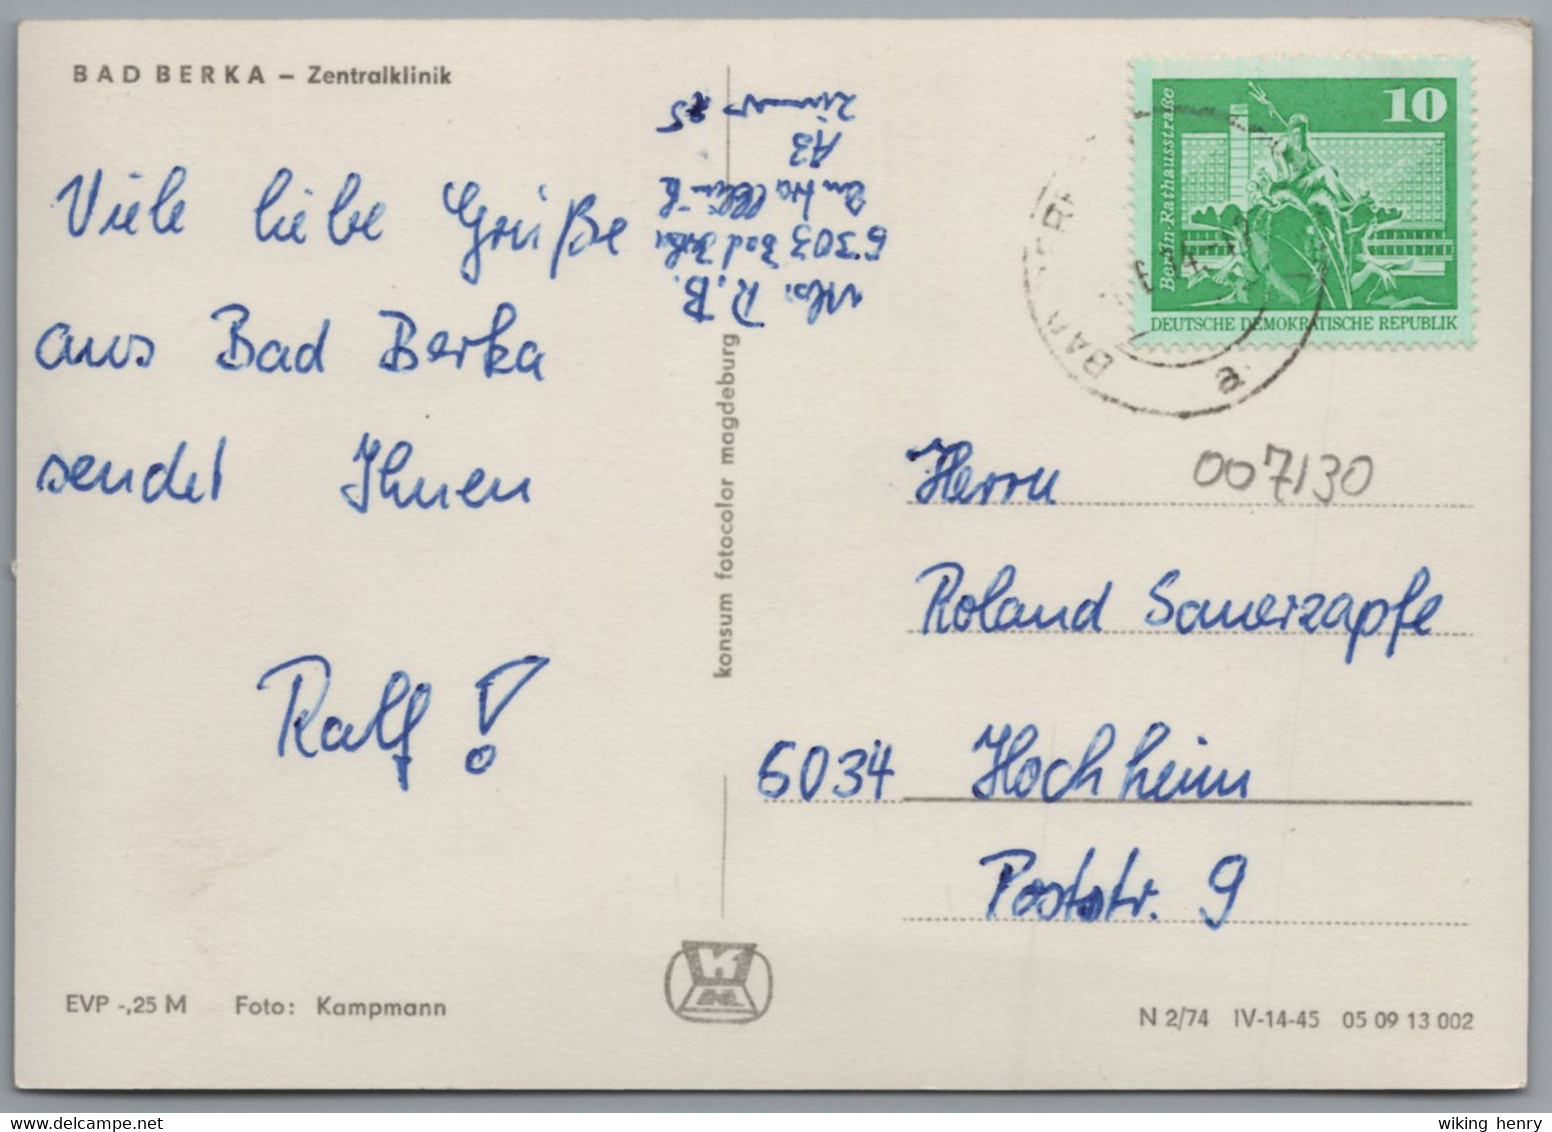 BAD BERKA – Zentralklinik
Viele liebe Grüße
aus Bad Berka
sendet Ihnen
Ralf!
Abs. R.B.
5303 Bad Berka
Zentralklinik
A3
Zimmer 25
konsum fotocolor magdeburg
10
Berlin-Rathausstraße
DEUTSCHE DEMOKRATISCHE REPUBLIK
BAD BERKA
a
Herrn
007130
Roland Sauerzapfe
6034 Hochheim
Poststr. 9
EVP -,25 M Foto: Kampmann
N 2/74 IV-14-45 05 09 13 002
wiking henry